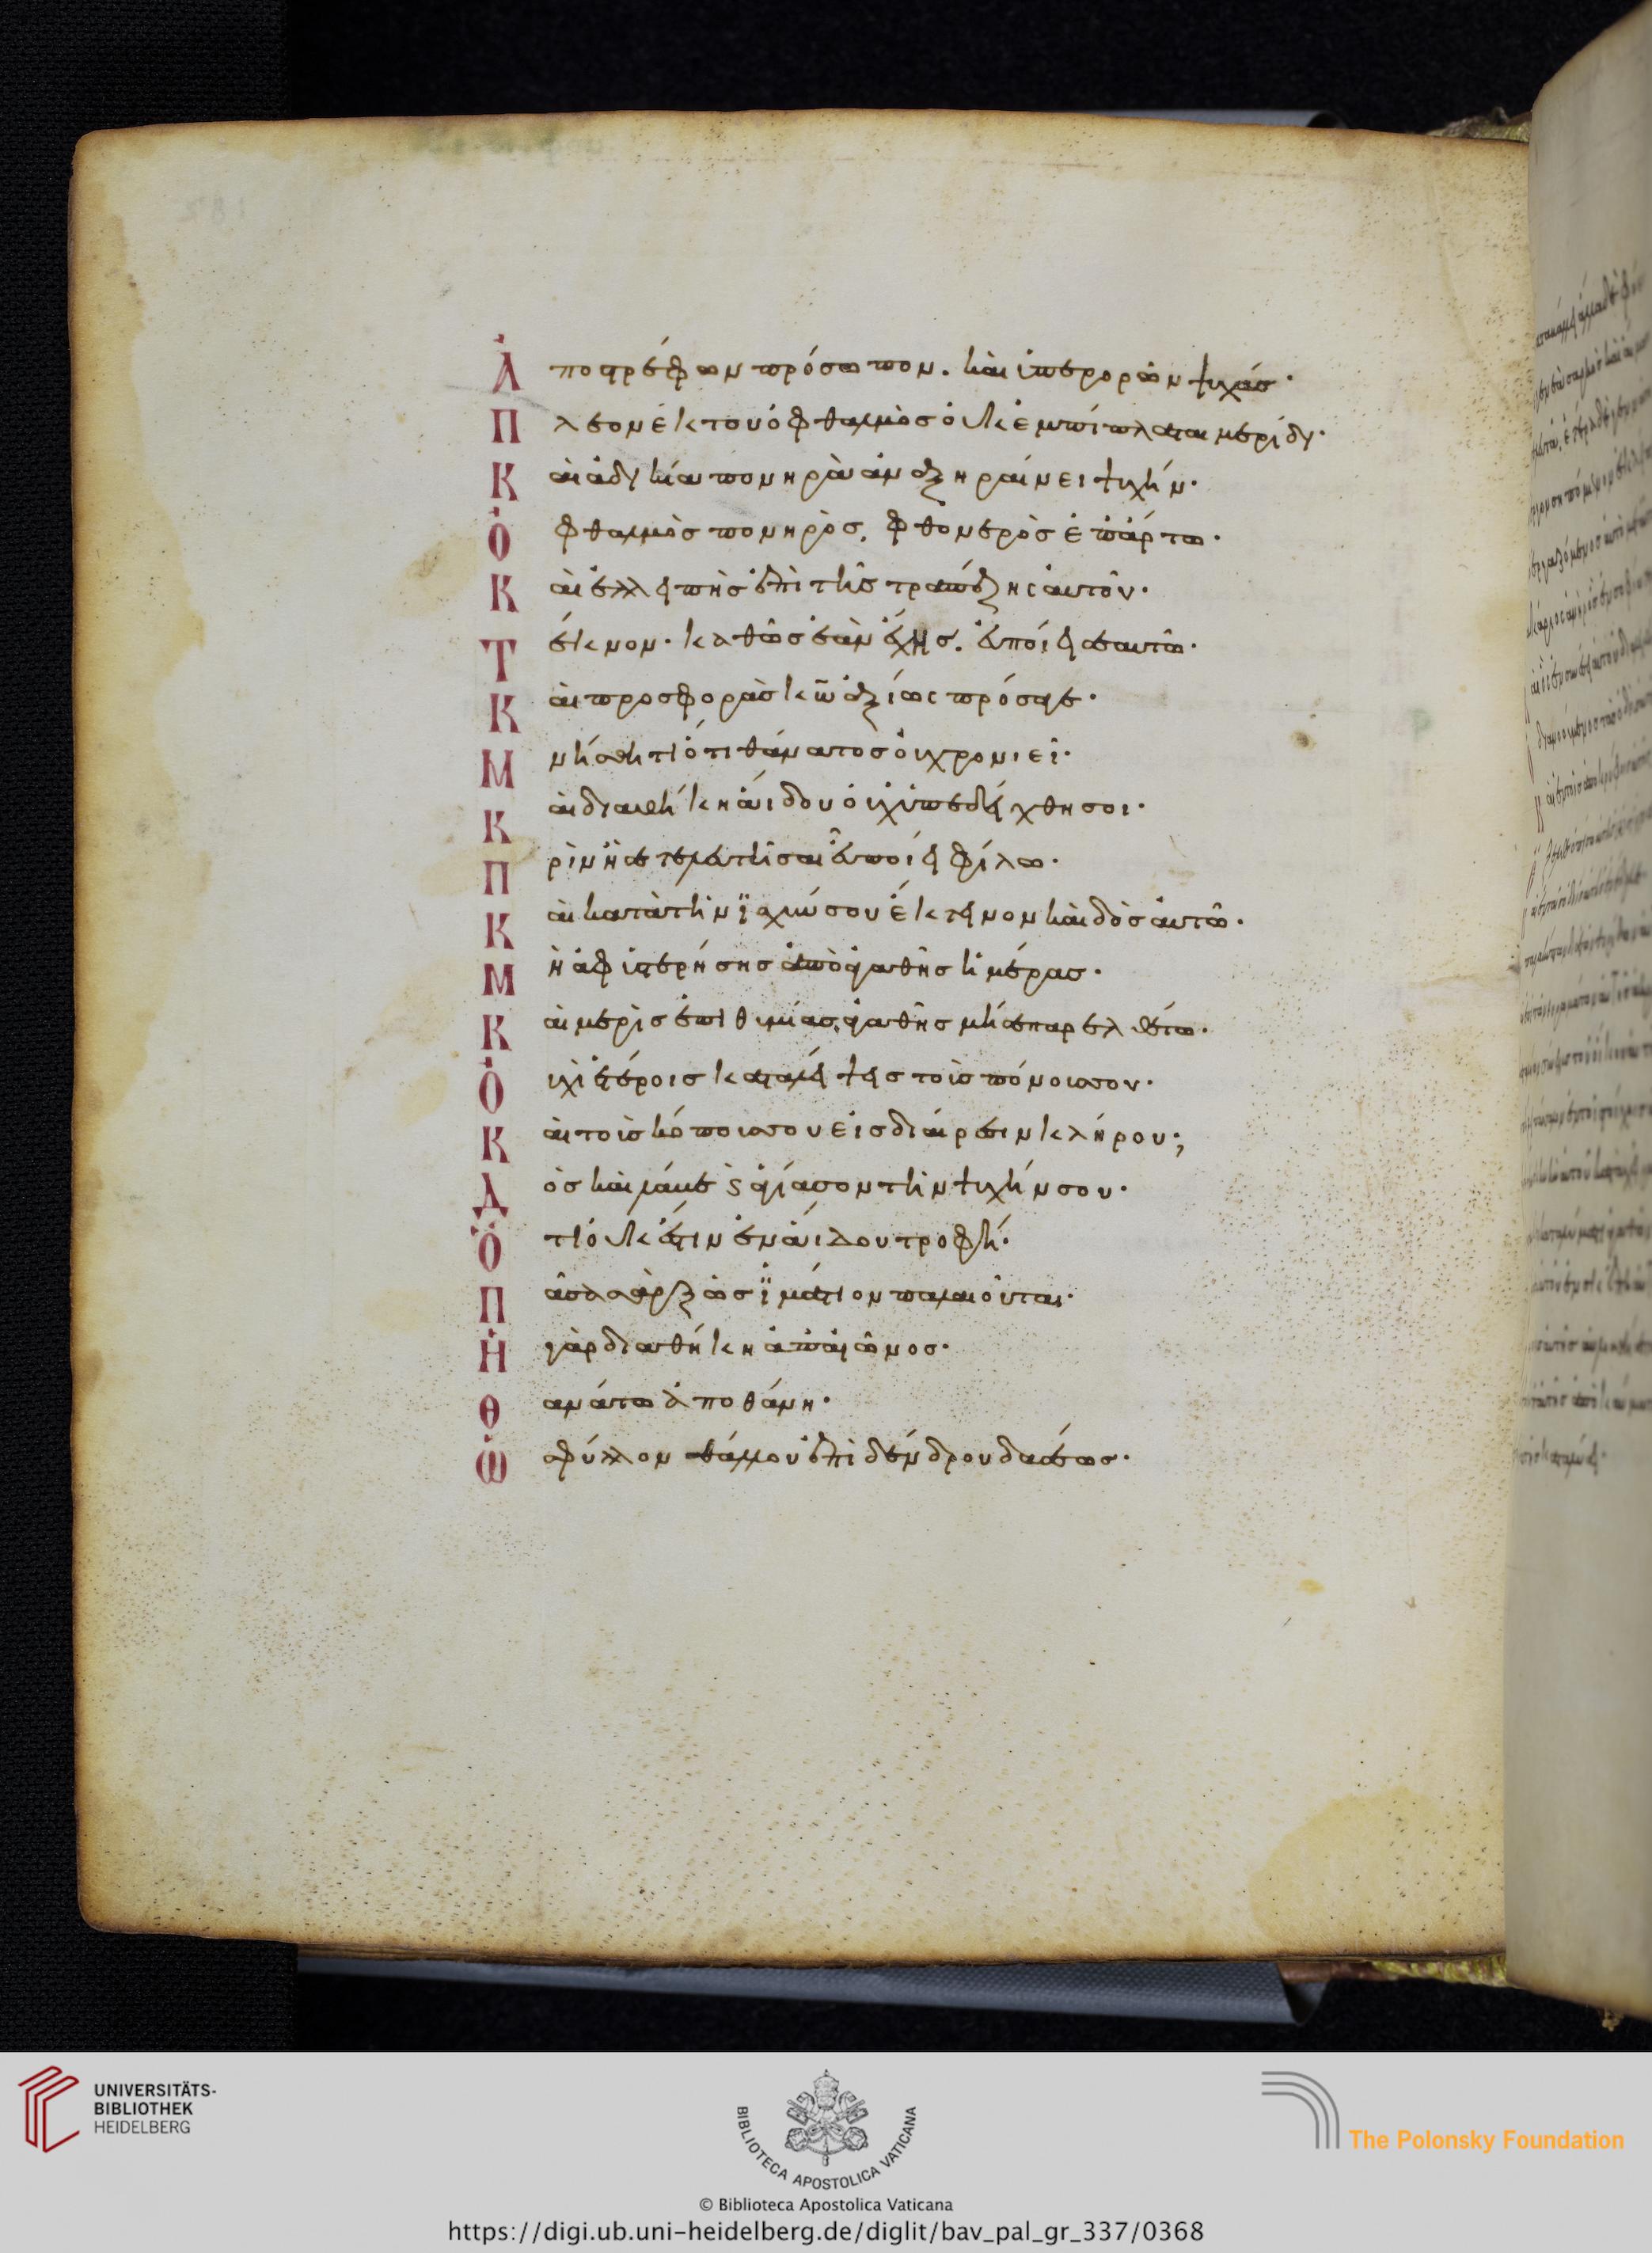 Ἀποστρέφων πρόσωπον. καὶ ὑπερορῶν ψυχάς·
Πλεονέκτου ὀφθαλμὸς οὐκ ἐμπίπλαται μερίδι·
Καὶ ἀδικία πονηρὰ ἀναξηραίνει ψυχήν·
Ὀφθαλμὸς πονηρὸς, φθονερὸς ἐπ' ἄρτω·
Καὶ ἐλλειπὴς ἐπὶ τῆς τραπέζης αὐτοῦ·
Τέκνον· καθὼς ἐὰν ἔχης. εὖ ποίει σεαυτῶ·
Καὶ προσφορὰς κ̅ω̅ ἀξίως πρόσαγε·
Μνήσθητι ὅτι θάνατος οὐ χρονιεῖ·
Καὶ διαθήκη ἅιδου οὐχ ὑπεδείχθη σοι·
Πρίν ἤ σε τελευτῆσαι εὖ ποίει φίλω·
Καὶ κατὰ τὴν ϊσχύν σου ἔκτεινον καὶ δὸς αὐτῶ·
Μὴ ἀφυστερήσης ἀπὸ ἀγαθῆς ἡμέρας·
Καὶ μερὶς ἐπιθυμίας ἀγαθῆς μή σε παρελθέτω·
Οὐχὶ ἑτέροις καταλείψεις τοὺς πόνους σου·
Καὶ τοὺς κόπους σου εἰς διαίρεσιν κλήρου;
Δὸς καὶ λάμβε ϛ ἁγίασον τὴν ψυχήν σου·
Ὅτι οὐκ ἔστιν ἐν ἅιδου τροφή·
Πᾶσα σὰρξ ὡς ϊμάτιον παλαιοῦται·
Ἡ γὰρ διαθήκη ἀπ' αἰῶνος·
Θανάτω ἀποθάνη·
Ὡς φύλλον θάλλον ἐπὶ δένδρου δασέως·
UNIVERSITÄTS-
BIBLIOTHEK
HEIDELBERG
BIBLIOTECA APOSTOLICA VATICANA
The Polonsky Foundation
© Biblioteca Apostolica Vaticana
https://digi.ub.uni-heidelberg.de/diglit/bav_pal_gr_337/0368